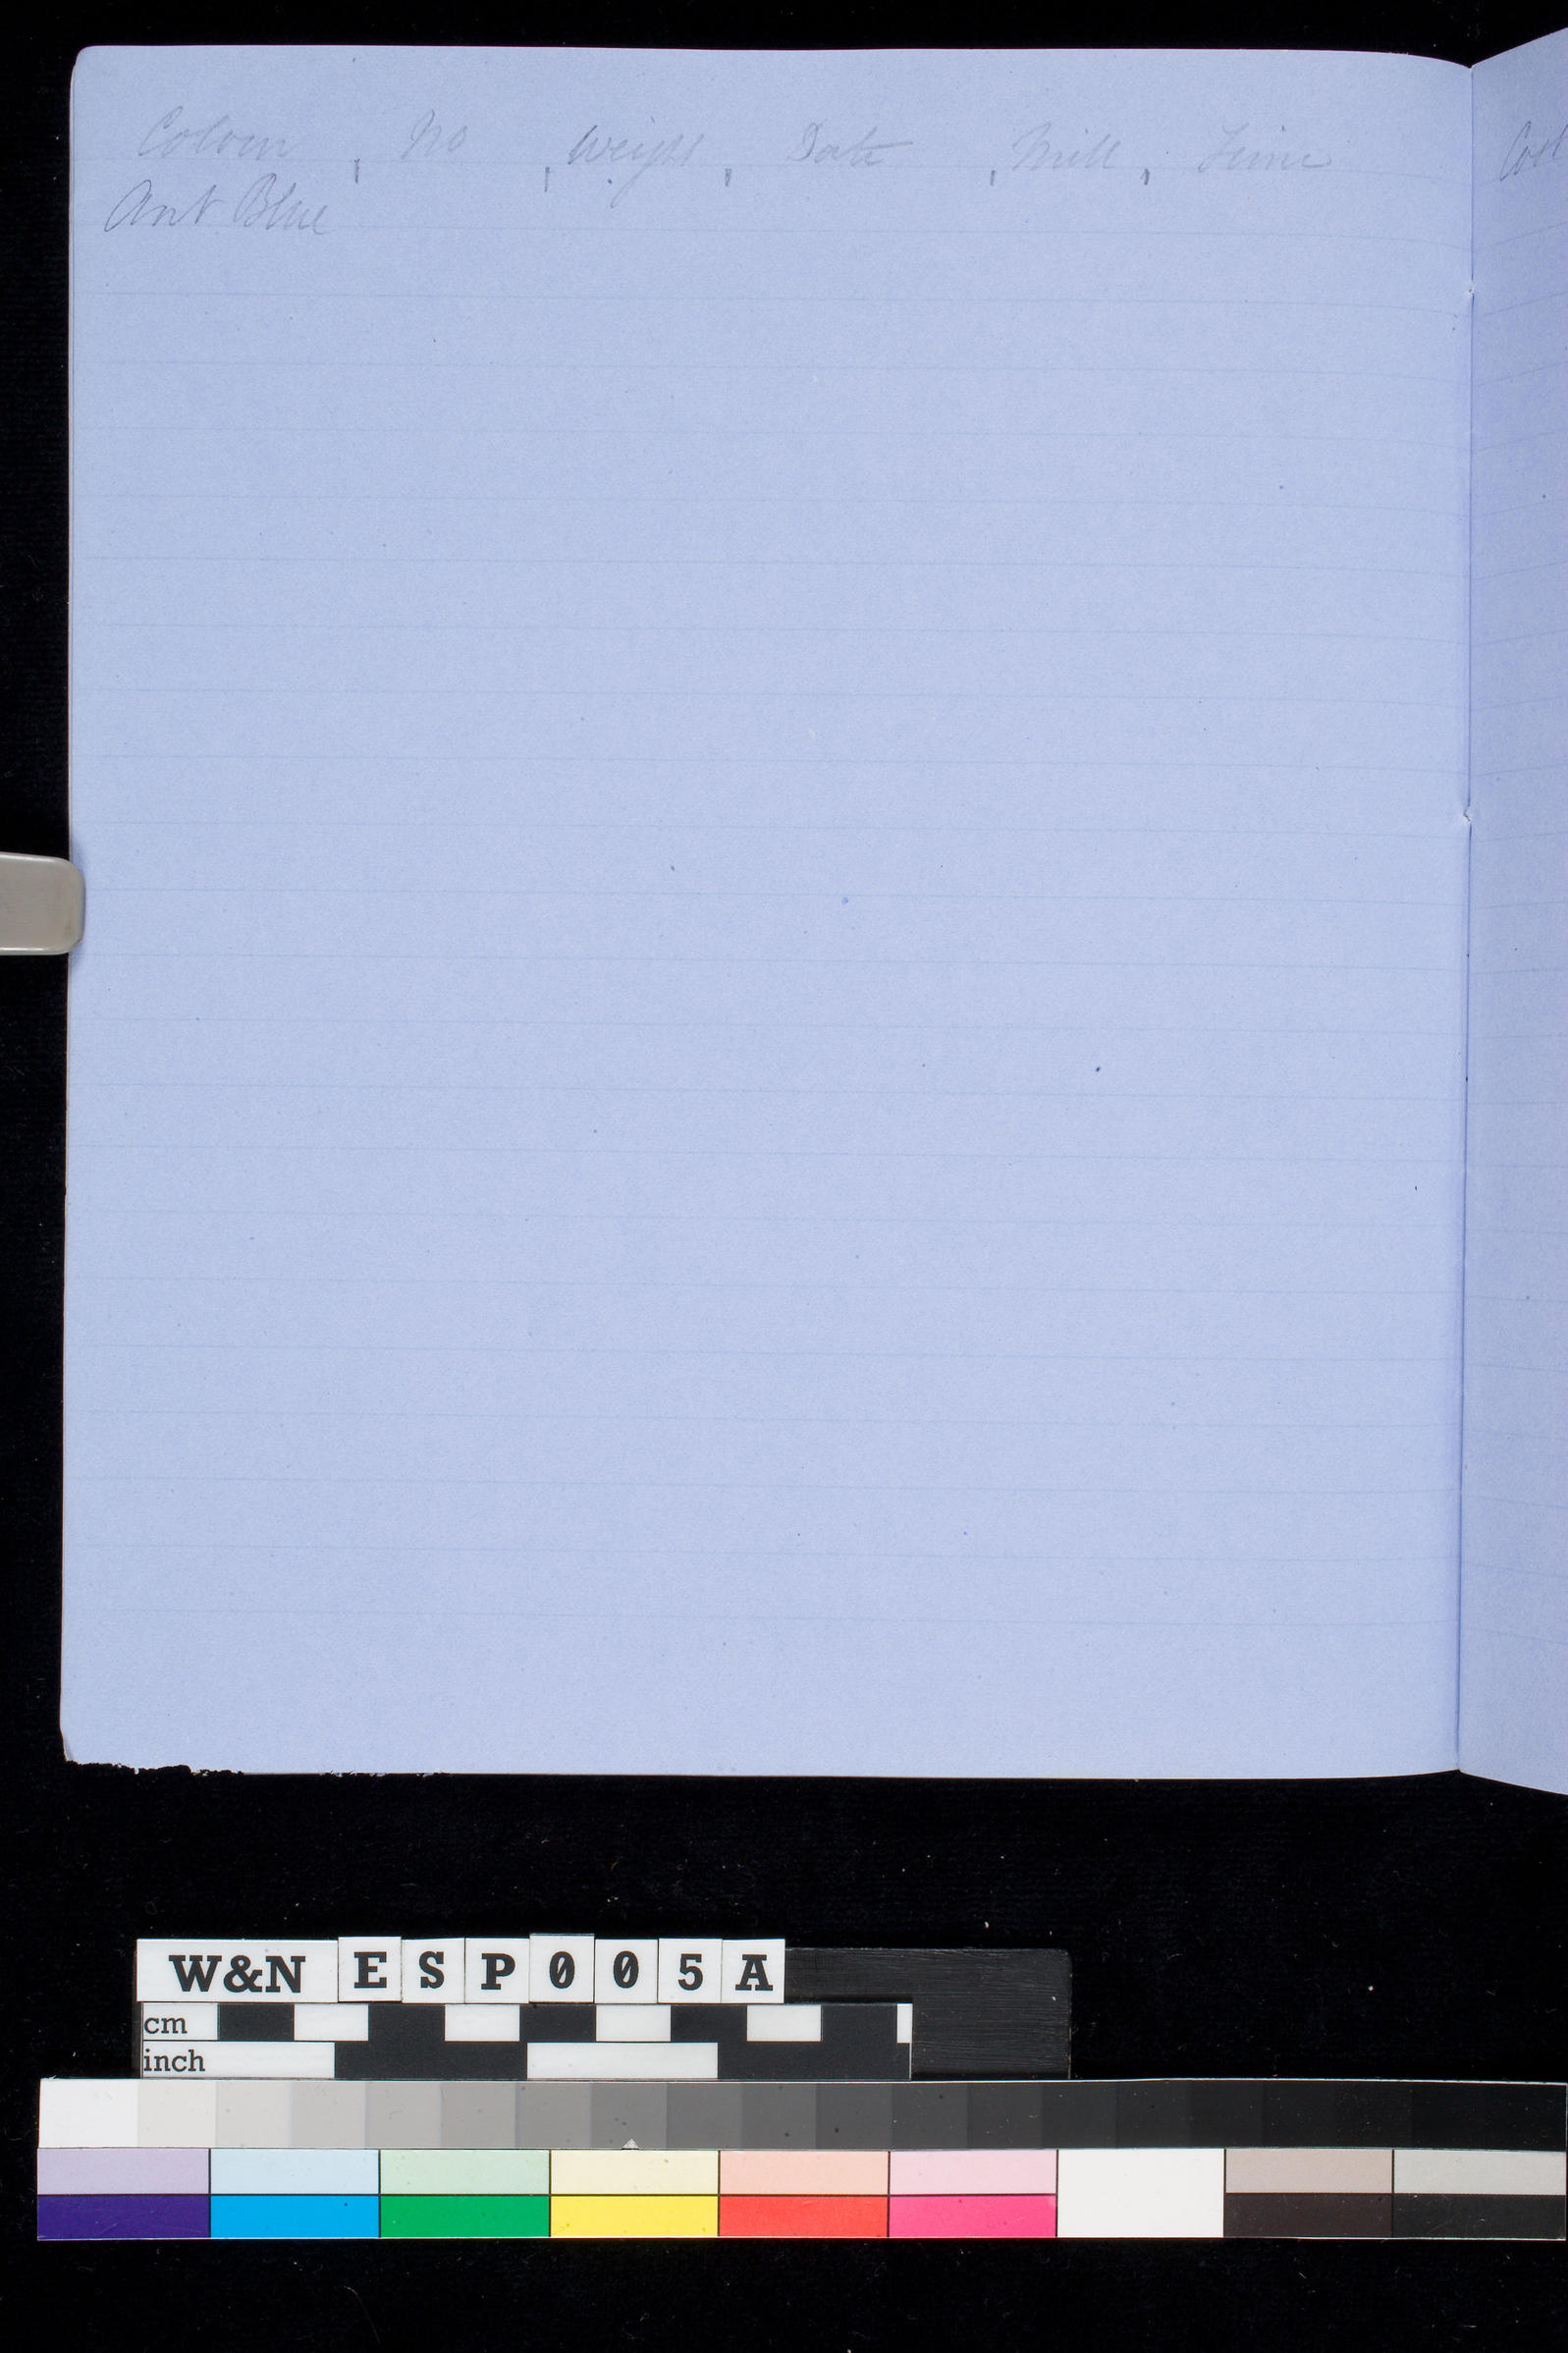 Colour No Weight Date Mill Time
Ant Blue
W&N ESP005A
cm
inch